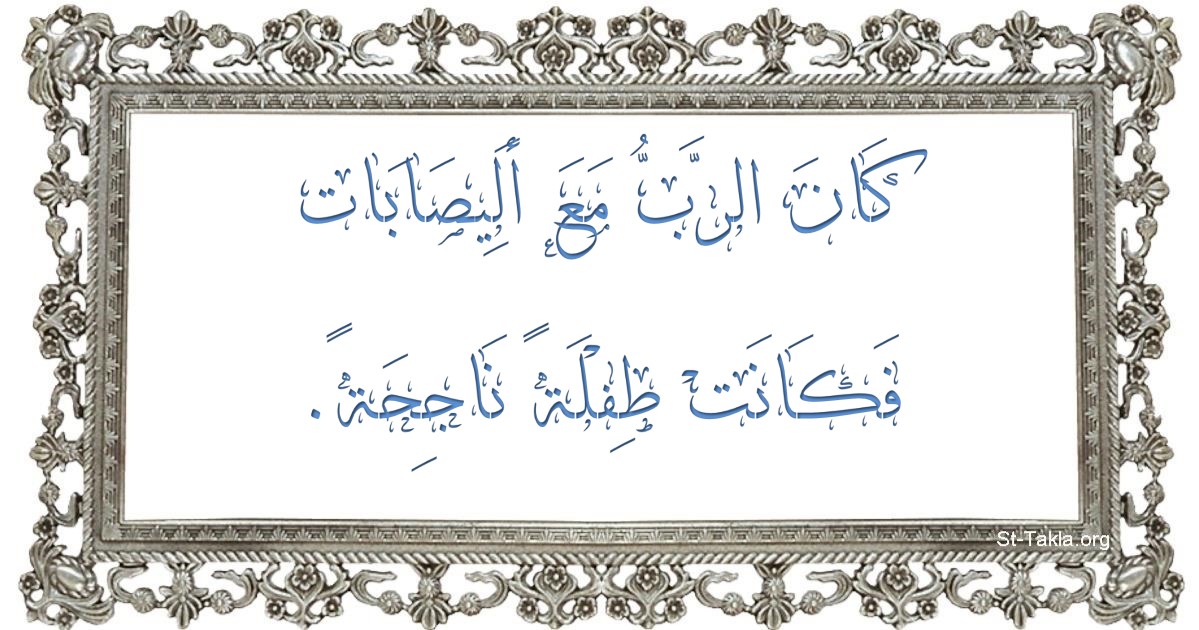 كَانَ الرَّبُّ مَعَ أَلِيصَابَات
فَكَانَتْ طِفْلَةً نَاجِحَةً.
St-Takla.org